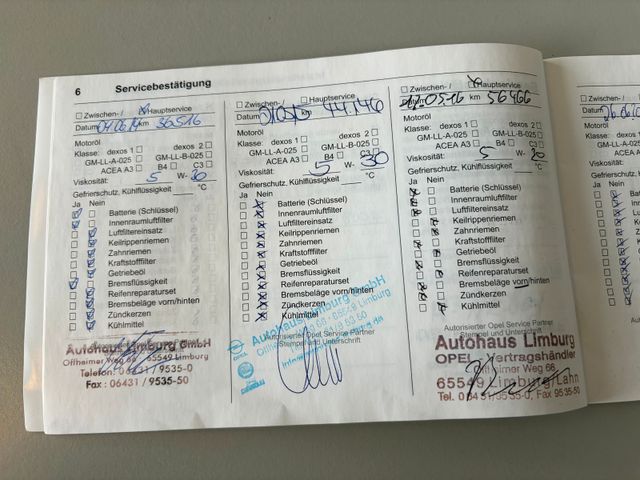 6 Servicebestätigung
Zwischen- / Hauptservice
Datum 04.06.14 km 36516
Motoröl
Klasse: dexos 1 dexos 2
GM-LL-A-025 GM-LL-B-025
ACEA A3 B4 C3
Viskosität: 5 W- 30
Gefrierschutz, Kühlflüssigkeit °C
Ja Nein
Batterie (Schlüssel)
Innenraumluftfilter
Luftfiltereinsatz
Keilrippenriemen
Zahnriemen
Kraftstofffilter
Getriebeöl
Bremsflüssigkeit
Reifenreparaturset
Bremsbeläge vorn/hinten
Zündkerzen
Kühlmittel
Autohaus Limburg GmbH
Offheimer Weg 66 65549 Limburg
Telefon: 06431 / 9535-0
Fax: 06431 / 9535-50
Zwischen- / Hauptservice
Datum km 44146
Motoröl
Klasse: dexos 1 dexos 2
GM-LL-A-025 GM-LL-B-025
ACEA A3 B4 C3
Viskosität: 5 W- 30
Gefrierschutz, Kühlflüssigkeit °C
Ja Nein
Batterie (Schlüssel)
Innenraumluftfilter
Luftfiltereinsatz
Keilrippenriemen
Zahnriemen
Kraftstofffilter
Getriebeöl
Bremsflüssigkeit
Reifenreparaturset
Bremsbeläge vorn/hinten
Zündkerzen
Kühlmittel
Autorisierter Opel Service Partner
Stempel und Unterschrift
Autohaus Limburg GmbH
Zwischen- / Hauptservice
Datum 05.16 km 56466
Motoröl
Klasse: dexos 1 dexos 2
GM-LL-A-025 GM-LL-B-025
ACEA A3 B4 C3
Viskosität: 5 W- 30
Gefrierschutz, Kühlflüssigkeit °C
Ja Nein
Batterie (Schlüssel)
Innenraumluftfilter
Luftfiltereinsatz
Keilrippenriemen
Zahnriemen
Kraftstofffilter
Getriebeöl
Bremsflüssigkeit
Reifenreparaturset
Bremsbeläge vorn/hinten
Zündkerzen
Kühlmittel
Autorisierter Opel Service Partner
Stempel und Unterschrift
Autohaus Limburg
OPEL - Vertragshändler
Offheimer Weg 66
65549 Limburg/Lahn
Tel. 06431/9535-0, Fax 9535-50